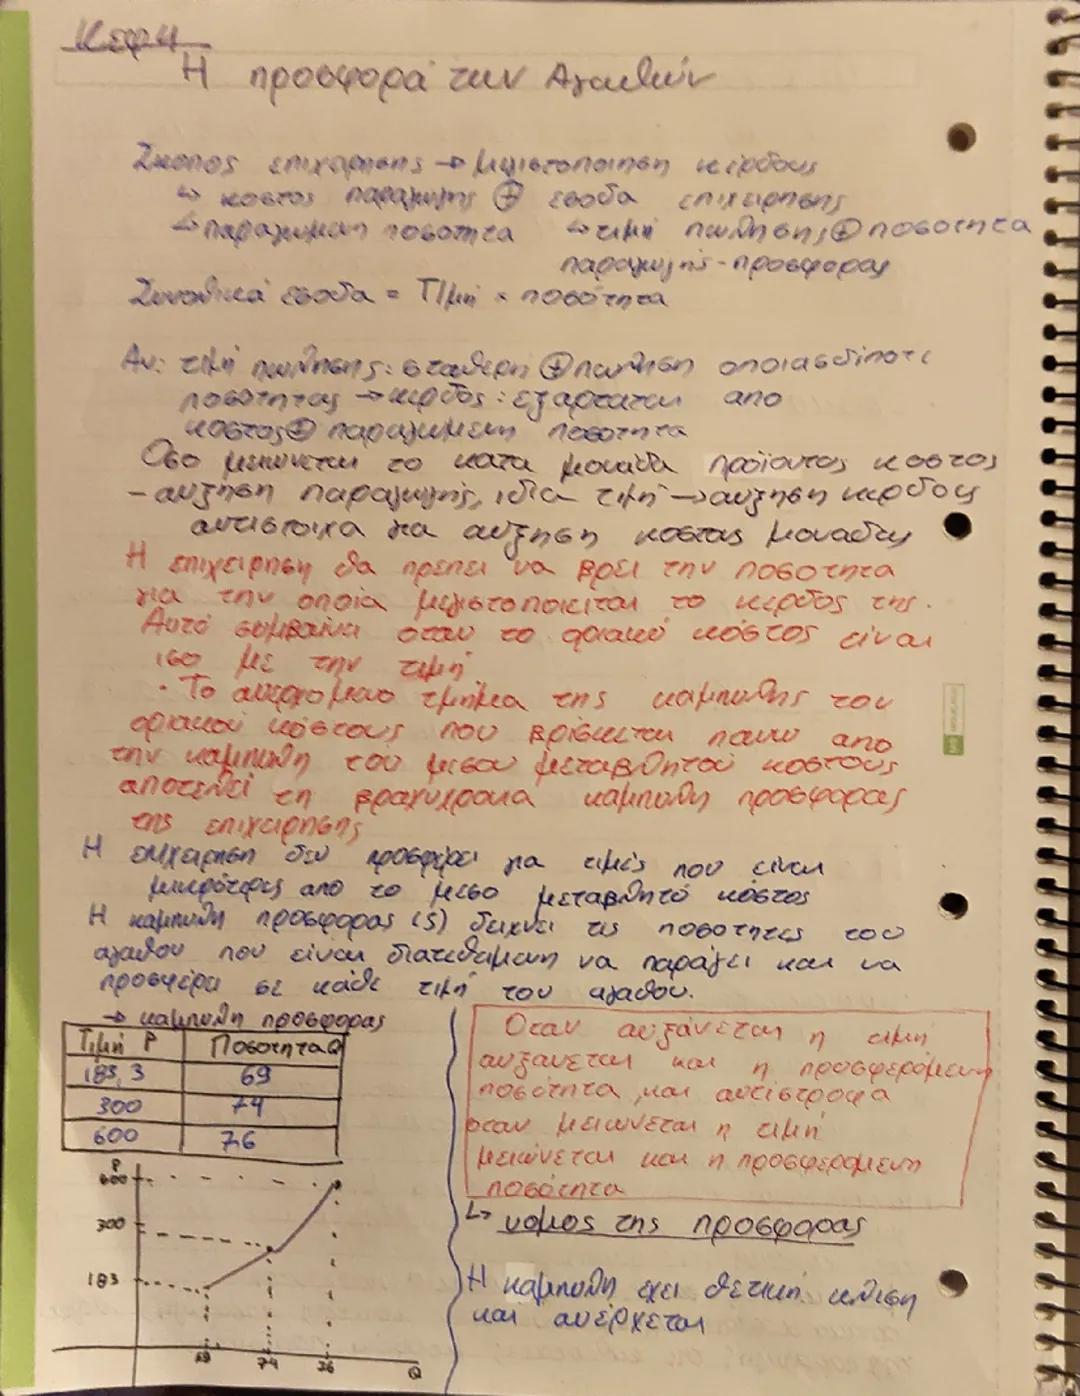 Κεφ 4
Η προσφορά των Αγαθών
Σκοπος επιχειρησης → Μεγιστοποιηση κερδους
↳ κοστος παραγωγης ⊕ εσοδα επιχειρησης
↳ παραγωμενη ποσοτητα ↳ τιμη πωλησης ⊕ ποσοτητα
παραγωγης - προσφορας
Συνολικά εσοδα = Τιμη × ποσότητα
Αν: τιμη πωλησης: σταθερη ⊕ πωληση οποιασδιποτε
ποσότητας → κερδος: εξαρταται απο
κοστος ⊕ παραγωμενη ποσοτητα
Οσο μειωνεται το κατα μοναδα προϊοντος κοστος
- αυξηση παραγωγης, ιδια τιμη → αυξηση κερδους
αντιστοιχα για αυξηση κοστας μοναδας
Η επιχειρηση θα πρεπει να βρει την ποσοτητα
για την οποία μεγιστοποιειται το κερδος της.
Αυτό συμβαινει οταν το οριακό κόστος είναι
ισο με την τιμη
· Το ανερχομενο τμημα της καμπυλης του
οριακού κόστους που βρίσκεται πανω απο
την καμπυλη του μεσου μεταβλητού κοστους
αποτελεί τη βραχυχρονια καμπυλη προσφορας
της επιχειρησης
Η επιχειρηση δεν προσφερει για τιμές που είναι
μικρότερες απο το μεσο μεταβλητό κόστος
Η καμπυλη προσφορας (S) δειχνει τις ποσοτητες του
αγαθου που είναι διατεθειμενη να παράγει και να
προσφέρει σε κάθε τιμή του αγαθου.
→ καμπυλη προσφορας
Τιμή P Ποσοτητα Q
183,3 69
300 74
600 76
P
600
300
183
69 74 76 Q
Οταν αυξάνεται η τιμη
αυξανεται και η προσφερόμενη
ποσότητα, και αντιστροφα
οταν μειωνεται η τιμη
μειώνεται και η προσφερομενη
ποσότητα
↳ νομος της προσφορας
Η καμπυλη εχει θετικη κλιση
και ανέρχεται